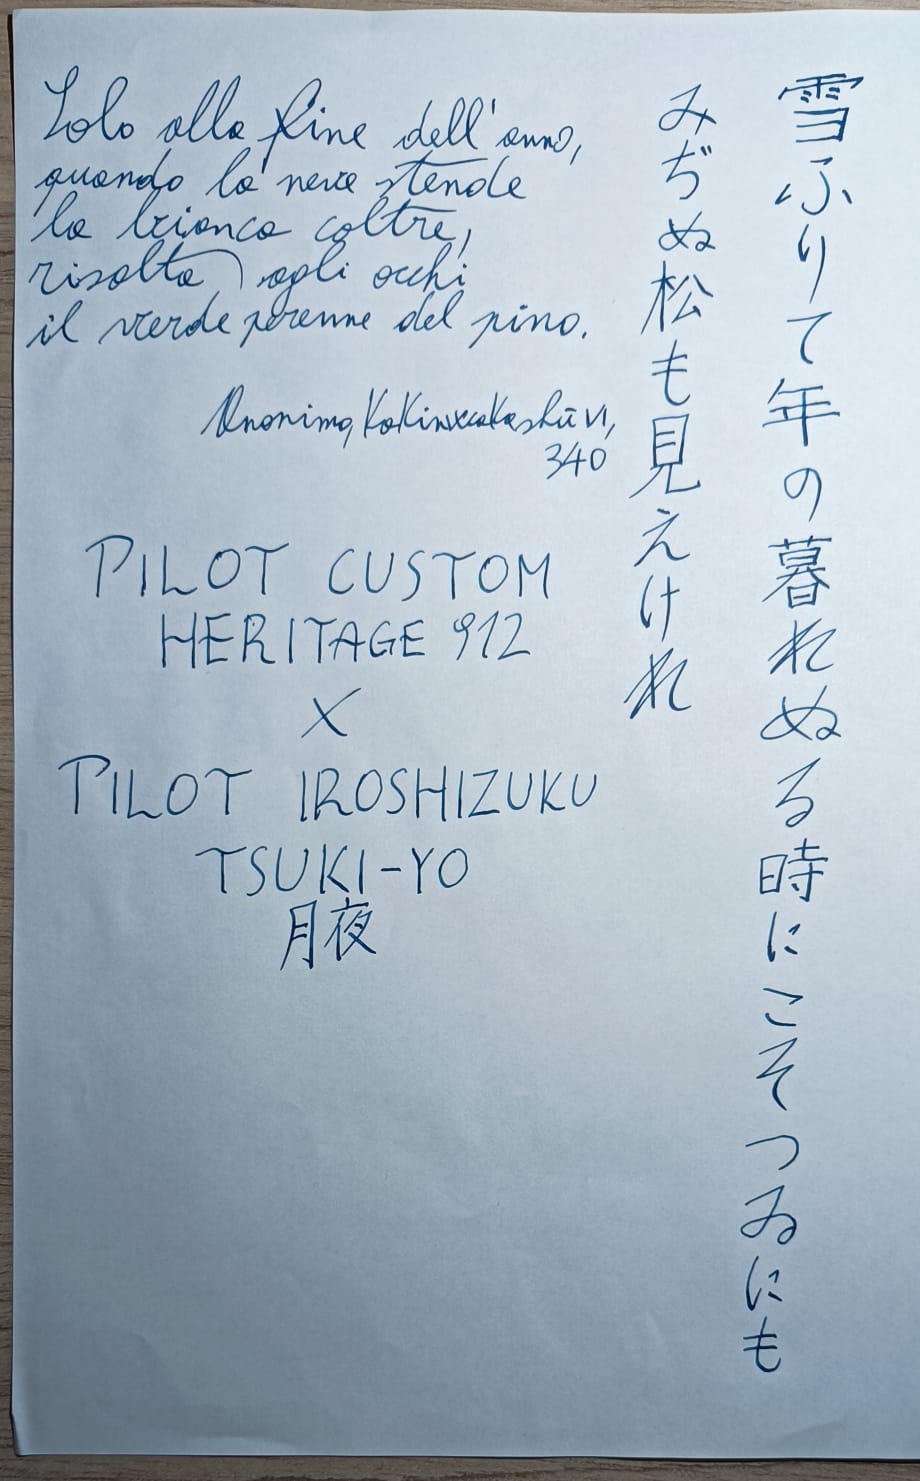 Solo alla fine dell'anno,
quando la neve stende
la bianca coltre,
risalta agli occhi
il verde perenne del pino.
Anonimo, Kokinwakashū VI,
340
雪ふりて年の暮れぬる時にこそつゐにも
みぢぬ松も見えけれ
PILOT CUSTOM
HERITAGE 912
X
PILOT IROSHIZUKU
TSUKI-YO
月夜